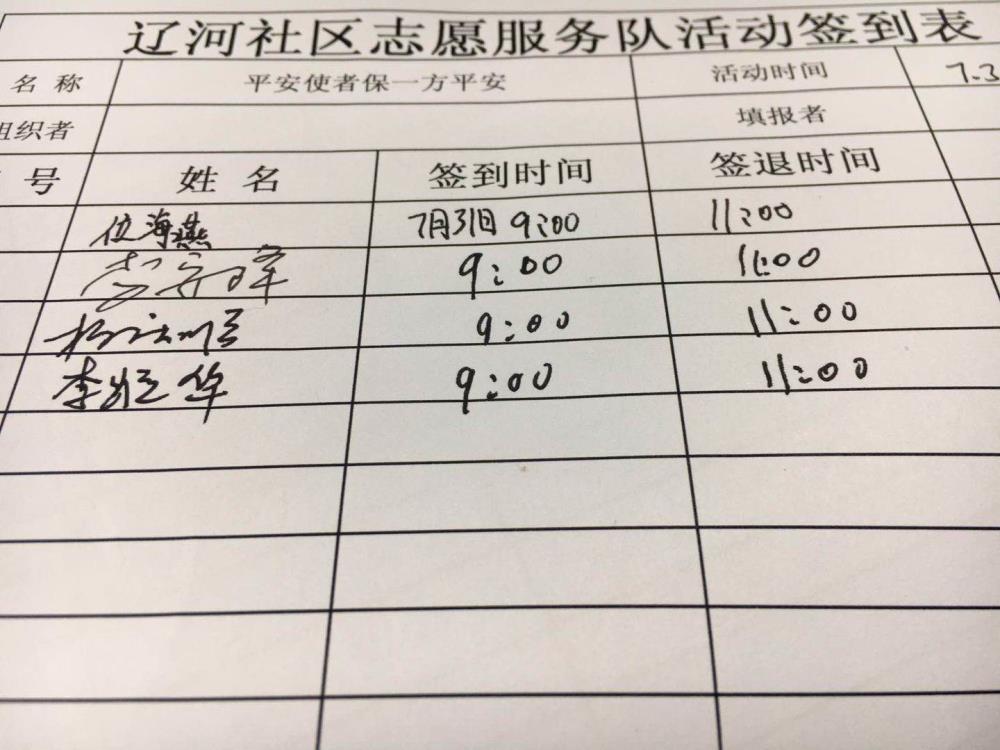 辽河社区志愿服务队活动签到表
名称 平安使者保一方平安 活动时间 7.3
组织者 填报者
号 姓名 签到时间 签退时间
位海燕 7月31日 9:00 11:00
9:00 11:00
9:00 11:00
李 华 9:00 11:00